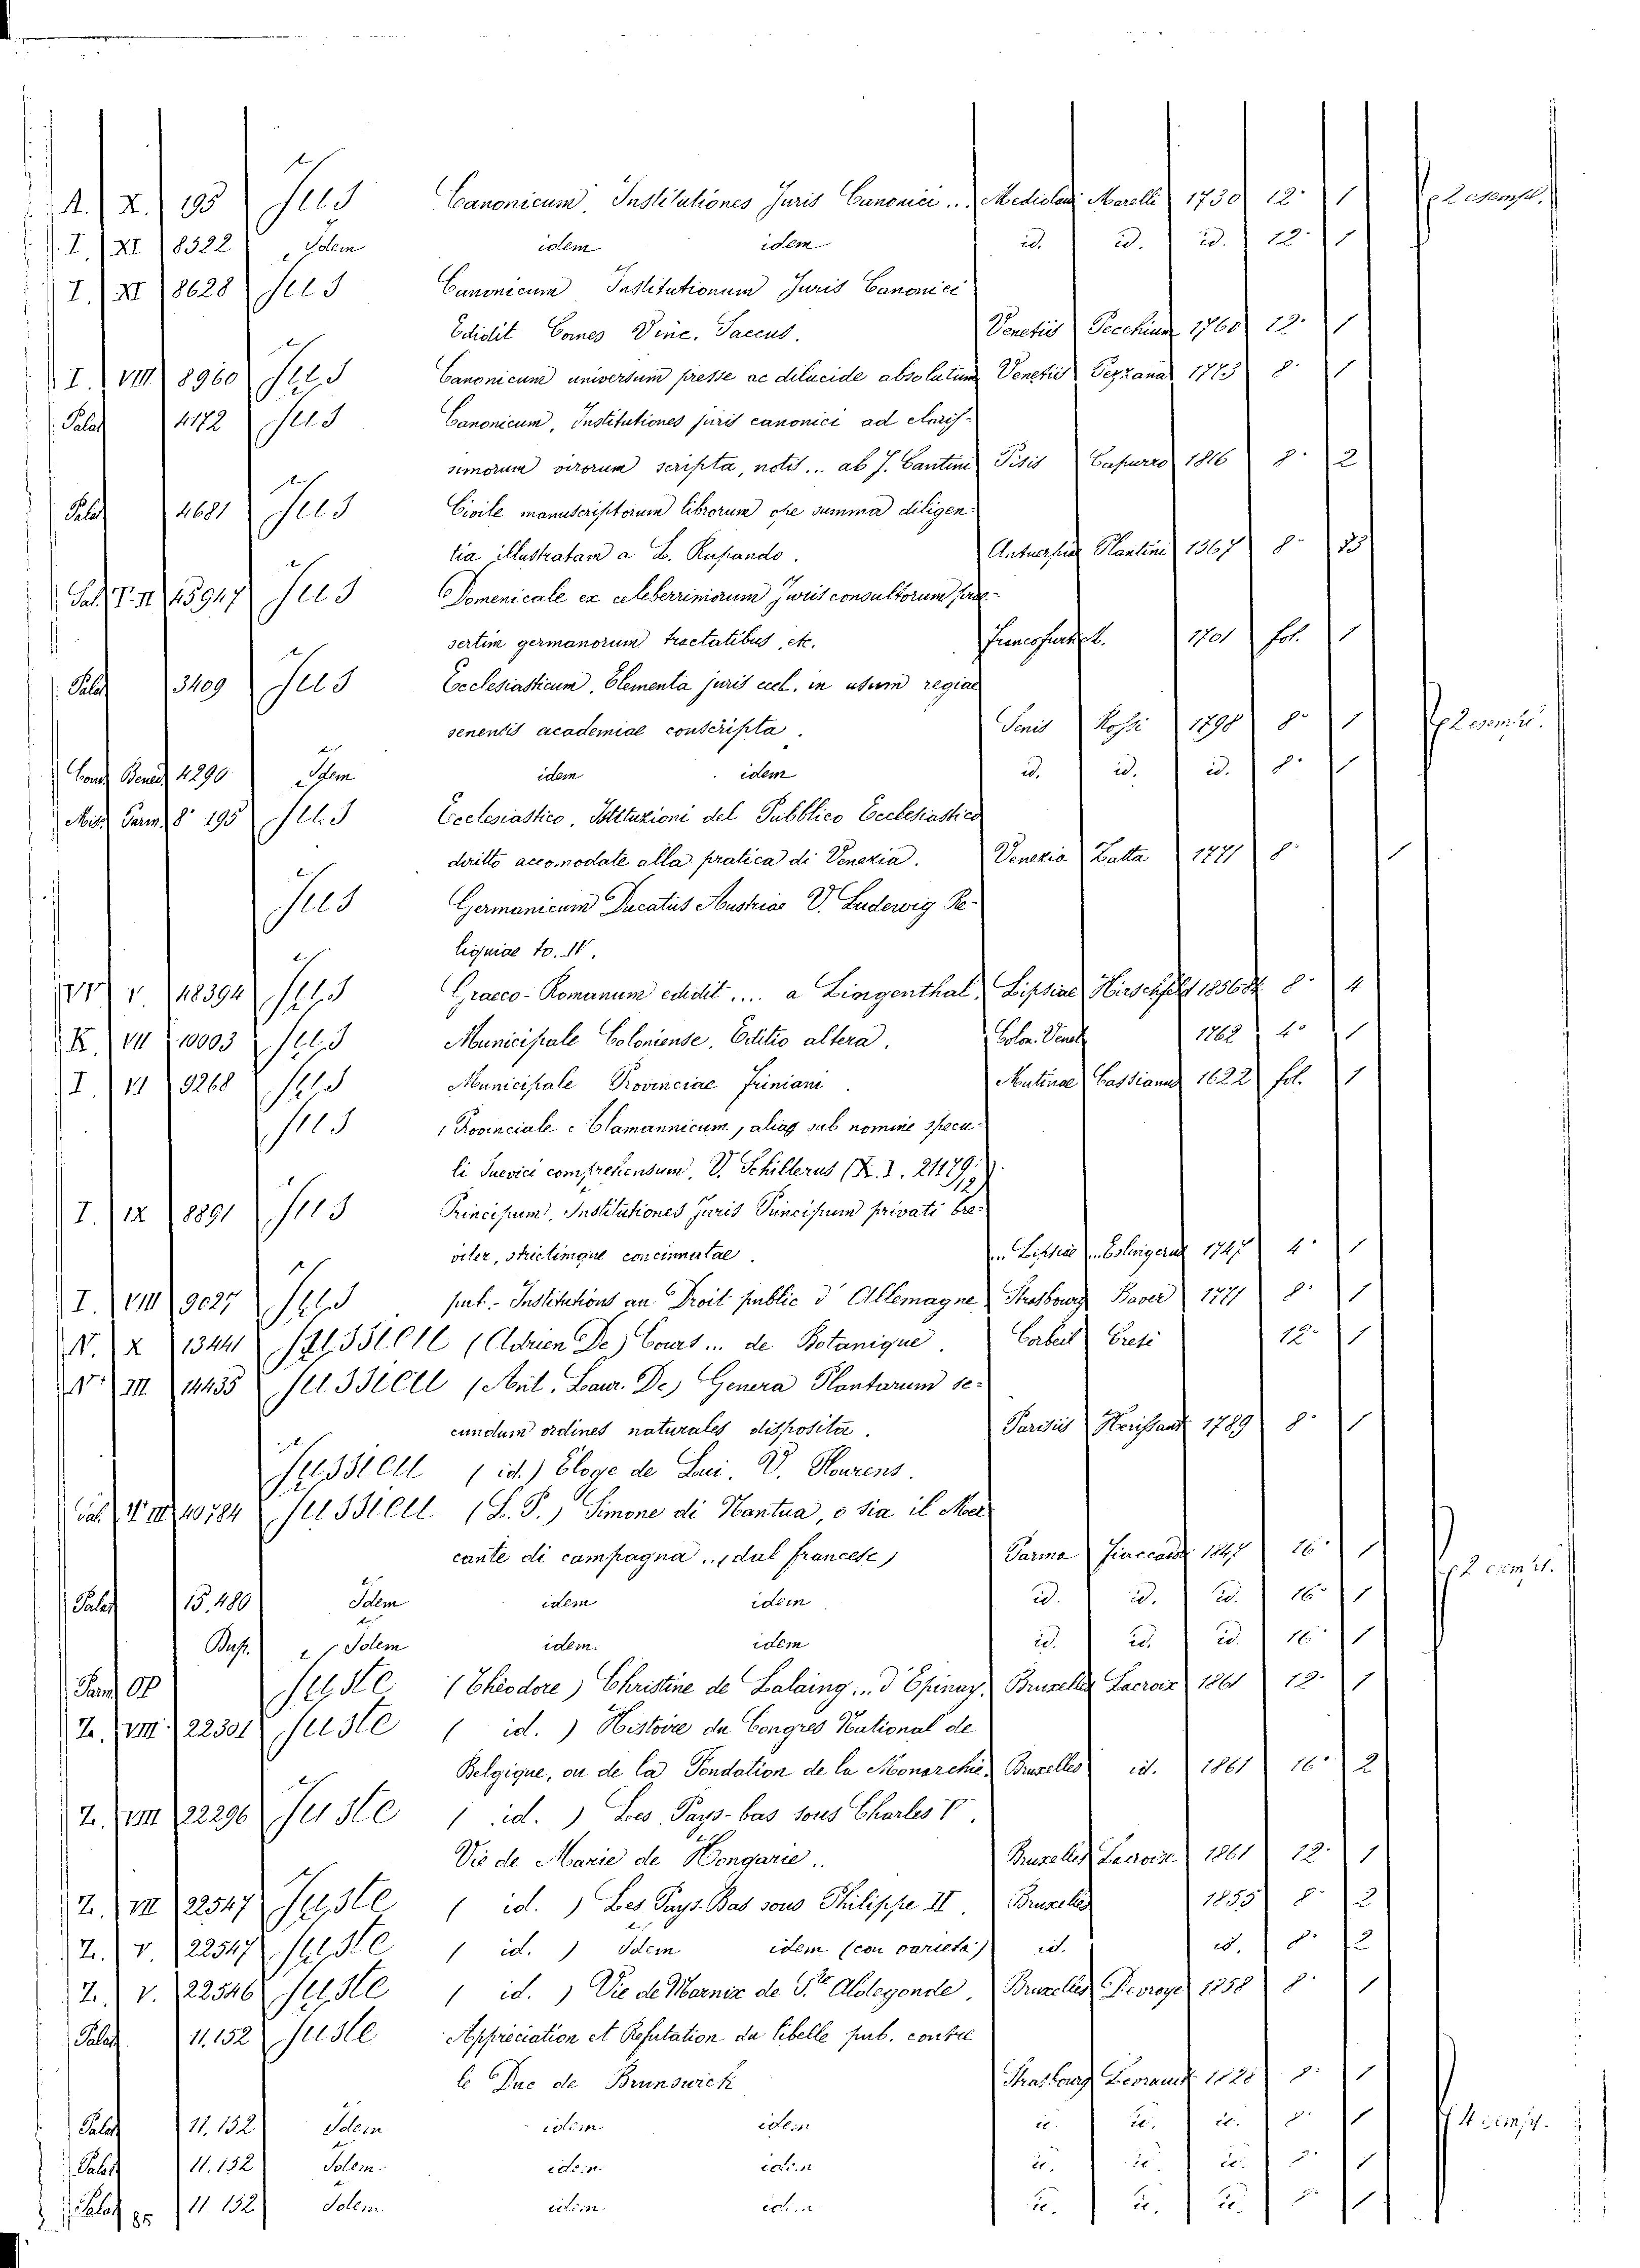 A. X. 195 Jus Canonicum. Institutiones Juris Canonici... Mediolani Marelli 1730 12° 1 2 esempl.
I. XI 8522 Idem idem idem id. id. id. 12° 1
I. XI 8628 Jus Canonicum Institutionum Juris Canonici
Edidit Comes Vinc. Saccus. Venetiis 1760 12° 1
I. VIII 8960 Jus Canonicum universum presse ac dilucide absolutum Venetiis Pezzana 1773 8° 1
Palat 4172 Jus Canonicum, Institutiones juris canonici ad claris-
simorum virorum scripta, notis... ab J. Cantini Pisis Capurro 1816 8° 2
Palat 4681 Jus Civile manuscriptorum librorum ope summa diligen-
tia illustratam a L. Rusando. Antuerpiae Plantini 1567 8°
Pal. T. II 15947 Jus Domenicale ex celeberrimorum Jurisconsultorum prae-
sertim germanorum tractatibus, etc. 1701 fol. 1
Palat 3409 Jus Ecclesiasticum, Elementa juris eccl. in usum regiae
senensis academiae conscripta. Senis Rossi 1798 8° 1
Cond. Bened. 4290 Idem idem idem id. id. id. 8° 1
Misc. Parm. 8° 195 Jus Ecclesiastico, Istituzioni del Pubblico Ecclesiastico
diritto accomodate alla pratica di Venezia. Venezia Zatta 1771 8° 1
Jus Germanicum Ducatus Austriae V. Ludewig Re-
liquiae to. IV.
V. 48394 Jus Graeco-Romanum edidit.... a Lingenthal Lipsiae Hirschfeld 8° 4
K. VII 10003 Jus Municipale Coloniense. Editio altera. Colon. 1762 4° 1
I. VI 9268 Jus Municipale Provinciae Friniani Mutinae Cassianus 1622 fol. 1
Jus Provinciale Alamannicum, alias sub nomine specu-
li Suevici comprehensum, V. Schillerus (X. I. 21179)
I. IX 8891 Jus Principum, Institutiones Juris Principum privati bre-
viter, strictimque concinnatae. Lipsiae 1747 4° 1
I. VIII 9027 Jus pub. - Institutions au Droit public d'Allemagne Strasbourg Baver 1771 8° 1
V. X 13441 Jussieu (Adrien De) Cours... de Botanique. Corbeil Creté 12° 1
III 14435 Jussieu (Ant. Laur. De) Genera Plantarum se-
cundum ordines naturales disposita. Parisiis Herissant 1789 8° 1
Jussieu (id.) Eloge de Lui. V. Flourens.
Pal. V III 40784 Jussieu (L. P.) Simone di Nantua, o sia il Mer-
cante di campagna... (dal francese) Parma Fiaccadori 1847 16° 1 2 esempl.
Palat 15.480 Idem idem idem id. id. id. 16° 1
Bup. Idem idem. idem id. id. id. 16 1
Parm. OP Juste (Théodore) Christine de Lalaing... d'Epinay. Bruxelles Lacroix 1861 12° 1
Z. VIII 22301 Juste (id.) Histoire du Congres National de
Belgique, ou de la Fondation de la Monarchie. Bruxelles id. 1861 16° 2
Z. VIII 22296 Juste (id.) Les Pays-bas sous Charles V.
Vie de Marie de Hongarie.. Bruxelles Lacroix 1861 12° 1
Z. VII 22547 Juste (id.) Les Pays Bas sous Philippe II. Bruxelles 1855 8° 2
Z. V. 22547 Juste (id.) Idem idem (con varietà) id. id. 8° 2
Z. V. 22546 Juste (id.) Vie de Marnix de Ste Aldegonde. Bruxelles 1858 8° 1
Palat 11.152 Juste Appréciation et Refutation du libelle pub. contre
le Duc de Brunswick Strasbourg Levrault 1828 8° 1
Palat 11.152 Idem idem idem id. id. id. 8° 1 4 esempl.
Palat 11.152 Idem idem idem id. id. id. 8° 1
Palat 85 11.152 Idem idem idem id. id. id. 8° 1